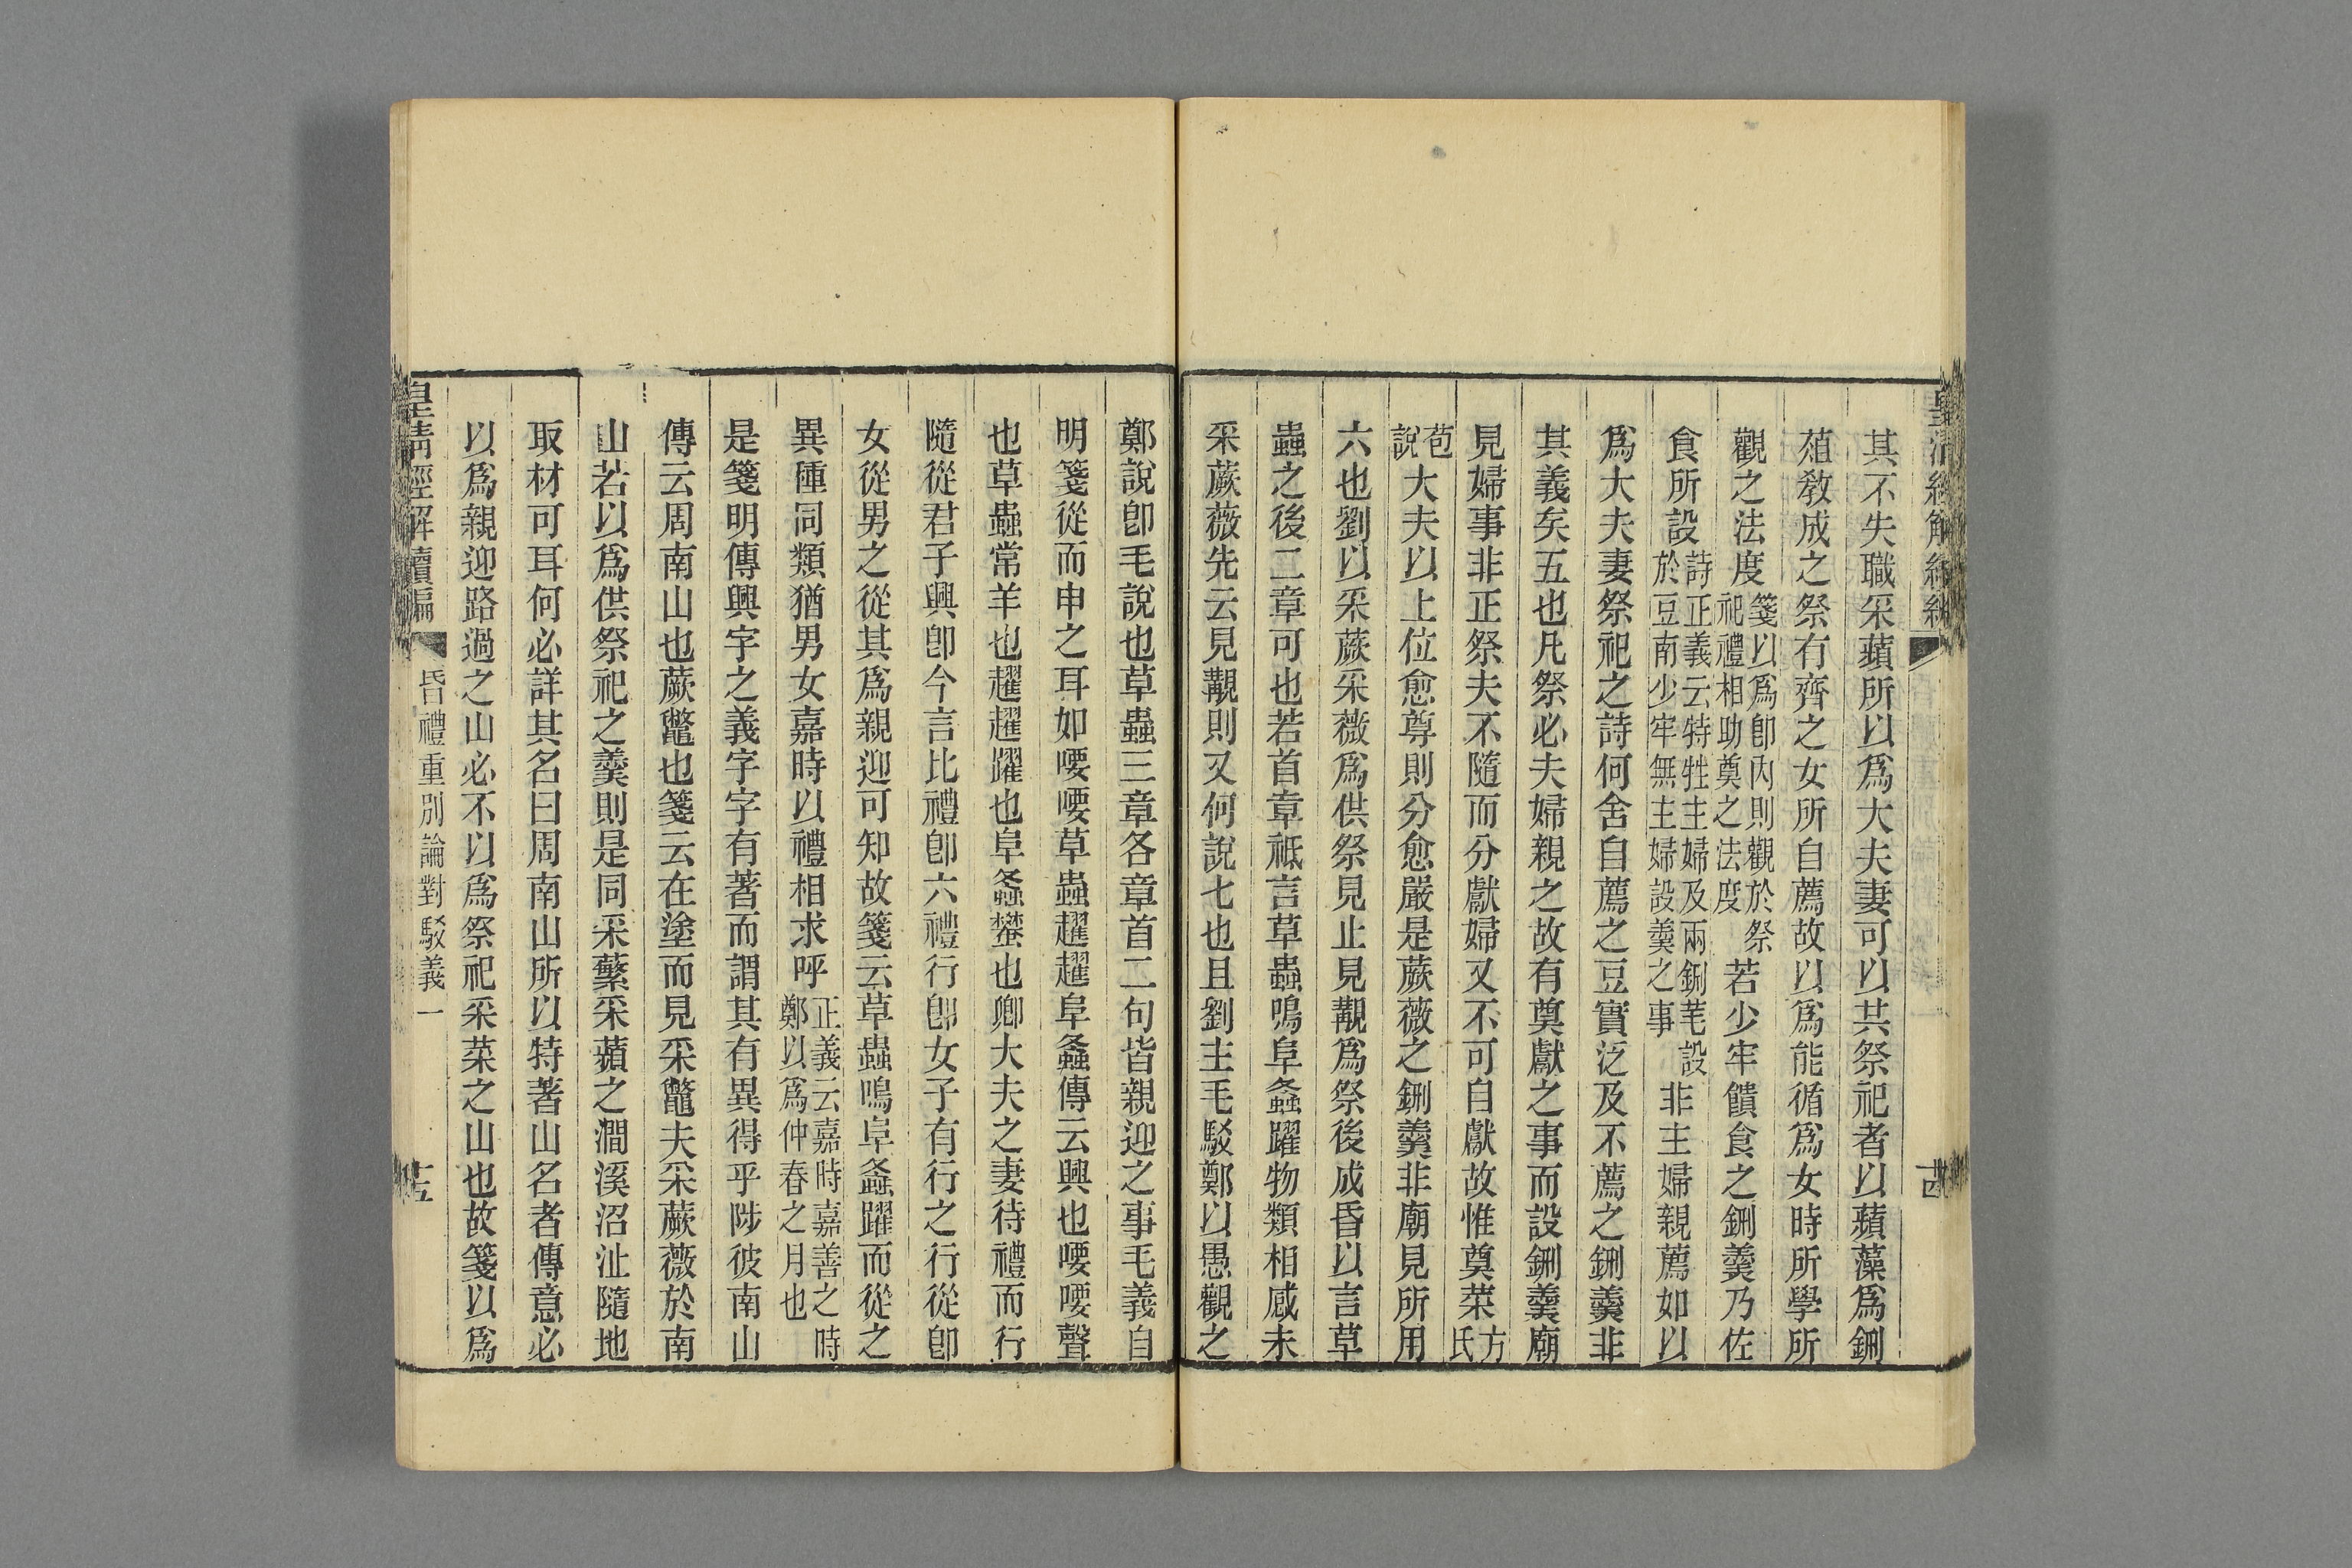 其不失職采蘋所以爲大夫妻可以共祭祀者以蘋藻爲鉶
殖敎成之祭有齊之女所自薦故以爲能循爲女時所學所
觀之法度箋以爲卽內則觀於祭祀禮相助奠之法度若少牢饋食之鉶羹乃佐
食所設詩正義云特牲主婦及兩鉶芼設於豆南少牢無主婦設羹之事非主婦親薦如以
爲大夫妻祭祀之詩何舍自薦之豆實泛及不薦之鉶羹非
其義矣五也凡祭必夫婦親之故有奠獻之事而設鉶羹廟
見婦事非正祭夫不隨而分獻婦又不可自獻故惟奠菜方氏
苞說大夫以上位愈尊則分愈嚴是蕨薇之鉶羹非廟見所用
六也劉以采蕨采薇爲供祭見止見覯爲祭後成昏以言草
蟲之後二章可也若首章祗言草蟲鳴阜螽躍物類相感未
采蕨薇先云見覯則又何說七也且劉主毛駁鄭以愚觀之
鄭說卽毛說也草蟲三章各章首二句皆親迎之事毛義自
明箋從而申之耳如喓喓草蟲趯趯阜螽傳云興也喓喓聲
也草蟲常羊也趯趯躍也阜螽蠜也卿大夫之妻待禮而行
隨從君子興卽今言比禮卽六禮行卽女子有行之行從卽
女從男之從其爲親迎可知故箋云草蟲鳴阜螽躍而從之
異種同類猶男女嘉時以禮相求呼正義云嘉時嘉善之時鄭以爲仲春之月也
是箋明傳興字之義字字有著而謂其有異得乎陟彼南山
傳云周南山也蕨鼈也箋云在塗而見采鼈夫采蕨薇於南
山若以爲供祭祀之羹則是同采蘩采蘋之澗溪沼沚隨地
取材可耳何必詳其名曰周南山所以特著山名者傳意必
以爲親迎路過之山必不以爲祭祀采菜之山也故箋以爲
皇淸經解續編
昏禮重別論對駁義一
十五